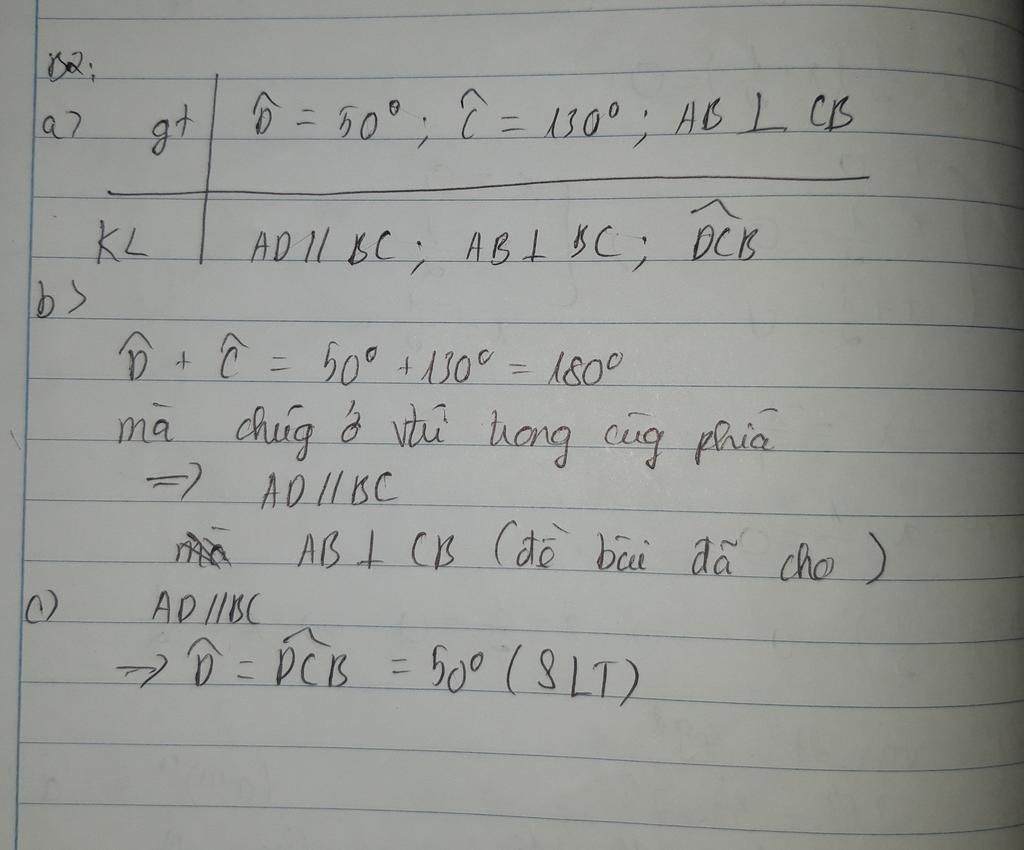 B2:
a) gt | D̂ = 50°; Ĉ = 130°; AB ⊥ CB
KL | AD // BC; AB ⊥ BC; D̂CB
b)
D̂ + Ĉ = 50° + 130° = 180°
mà chúg ở vtrí trong cùg phía
=> AD // BC
AB ⊥ CB (đề bài đã cho)
c) AD // BC
=> D̂ = D̂CB = 50° (SLT)